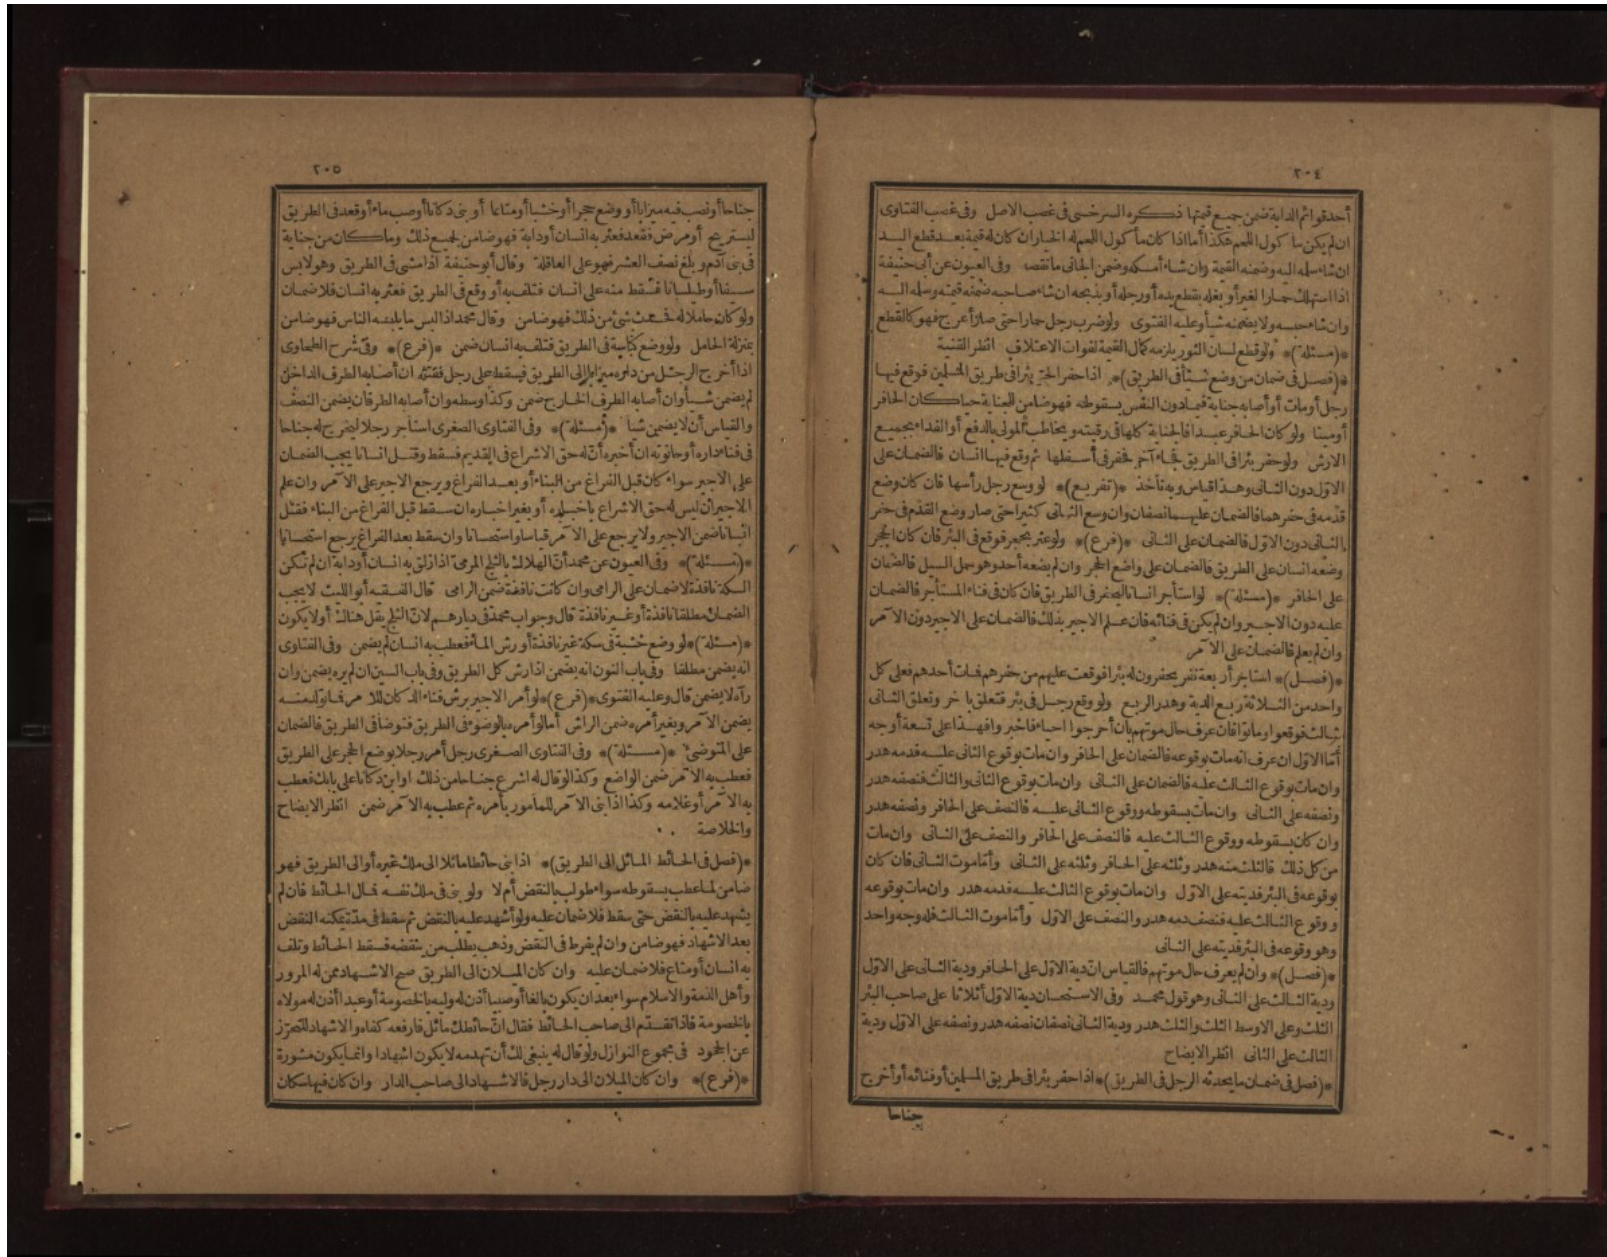 ٢٠٤
أحد قوائم الدابة ضمن جميع قيمتها ذكره السرخسى فى غصب الاصل وفى غصب الفتاوى
ان لم يكن مأكول اللحم هكذا أما اذا كان مأكول اللحم له الخيار ان كان له قيمة بعد قطع اليد
ان شاء سلمه اليه وضمنه القيمة وان شاء أمسكه وضمن الجانى ما نقصه وفى العيون عن أبى حنيفة
اذا استهلك حمارا لغير أو بغله بقطع يده أو رجله أو بذبحه ان شاء صاحبه ضمنه قيمته وسلمه اليه
وان شاء حبسه ولا يضمنه شيأ وعليه الفتوى ولو ضرب رجل حمارا حتى صار أعرج فهو كالقطع
*(مسئلة)* ولو قطع لسان الثور يلزمه كمال القيمة لفوات الاعتلاف انظر القنية
*(فصل فى ضمان من وضع شيأ فى الطريق)* اذا حفر الحر بئرا فى طريق المسلمين فوقع فيها
رجل أو مات أو أصابه جناية فيما دون النفس بسقوطه فهو ضامن للجناية حيا كان الحافر
أو ميتا ولو كان الحافر عبدا فالجناية كلها فى رقبته ويخاطب المولى بالدفع أو الفداء بجميع
الارش ولو حفر بئرا فى الطريق فجاء آخر فحفر فى أسفلها ثم وقع فيها انسان فالضمان على
الاول دون الثانى وهذا قياس وبه نأخذ *(تفريع)* لو وسع رجل رأسها فان كان وضع
قدمه فى حفرهما فالضمان عليهما نصفان وان وسع الثانى كثيرا حتى صار وضع القدم فى حفر
الثانى دون الاول فالضمان على الثانى *(فرع)* ولو عثر بحجر فوقع فى البئر فان كان الحجر
وضعه انسان على الطريق فالضمان على واضع الحجر وان لم يضعه أحد وهو سيل السيل فالضمان
على الحافر *(مسئلة)* لو استأجر انسانا ليحفر فى الطريق فان كان فى فناء المستأجر فالضمان
عليه دون الاجير وان لم يكن فى فنائه فان علم الاجير بذلك فالضمان على الاجير دون الآمر
وان لم يعلم فالضمان على الآمر
*(فصل)* استأجر أربعة نفر يحفرون له بئرا فوقعت عليهم من حفرهم فمات أحدهم فعلى كل
واحد من الثلاثة ربع الدية وهدر الربع ولو وقع رجل فى بئر فتعلق بآخر وتعلق الثانى
بثالث فوقعوا وماتوا فان عرف حال موتهم بأن أخرجوا أحياء فأخبروا فهذا على تسعة أوجه
أما الاول ان عرف انه مات بوقوعه فالضمان على الحافر وان مات بوقوع الثانى عليه فدمه هدر
وان مات بوقوع الثالث عليه فالضمان على الثانى وان مات بوقوع الثانى والثالث فنصفه هدر
ونصفه على الثانى وان مات بسقوطه ووقوع الثانى عليه فالنصف على الحافر ونصفه هدر
وان كان بسقوطه ووقوع الثالث عليه فالنصف على الحافر والنصف على الثانى وان مات
من كل ذلك فالثلث منه هدر وثلثه على الحافر وثلثه على الثانى وأما موت الثانى فان كان
بوقوعه فى البئر فديته على الاول وان مات بوقوع الثالث عليه فدمه هدر وان مات بوقوعه
ووقوع الثالث عليه فنصف دمه هدر والنصف على الاول وأما موت الثالث فله وجه واحد
وهو وقوعه فى البئر فديته على الثانى
*(فصل)* وان لم يعرف حال موتهم فالقياس ان دية الاول على الحافر ودية الثانى على الاول
ودية الثالث على الثانى وهو قول محمد وفى الاستحسان دية الاول أثلاثا على صاحب البئر
الثلث وعلى الاوسط الثلث والثلث هدر ودية الثانى نصفان نصفه هدر ونصفه على الاول ودية
الثالث على الثانى انظر الايضاح
*(فصل فى ضمان ما يحدثه الرجل فى الطريق)* اذا حفر بئرا فى طريق المسلمين أو فنائه أو أخرج
جناحا
٢٠٥
جناحا أو نصب فيه ميزابا أو وضع حجرا أو خشبا أو متاعا أو بنى دكانا أو صب ماء أو قعد فى الطريق
ليستريح أو مرض فقعد فعثر به انسان أو دابة فهو ضامن لجميع ذلك وما كان من جناية
فى بنى آدم وبلغ نصف العشر فهو على العاقلة وقال أبو حنيفة اذا مشى فى الطريق وهو لابس
سيفا أو طيلسانا فسقط منه على انسان فتلف به أو وقع فى الطريق فعثر به انسان فلا ضمان
ولو كان حاملا له فحدث شئ من ذلك فهو ضامن وقال محمد اذا لبس ما يلبسه الناس فهو ضامن
بمنزلة الحامل ولو وضع كناسة فى الطريق فتلف به انسان ضمن *(فرع)* وفى شرح الطحاوى
اذا أخرج الرجل من داره ميزابا الى الطريق فيسقط على رجل فقتله ان أصابه الطرف الداخل
لم يضمن شيأ وان أصابه الطرف الخارج ضمن وكذا وسطه وان أصابه الطرفان يضمن النصف
والقياس أن لا يضمن شيأ *(مسئلة)* وفى الفتاوى الصغرى استأجر رجلا ليخرج له جناحا
فى فناء داره أو حانوته ان أخبره أن له حق الاشراع فى القديم فسقط وقتل انسانا يجب الضمان
على الاجير سواء كان قبل الفراغ من البناء أو بعد الفراغ ويرجع الاجير على الآمر وان علم
الاجير أن ليس له حق الاشراع باخباره أو بغير اخباره ان سقط قبل الفراغ من البناء فقتل
انسانا ضمن الاجير ولا يرجع على الآمر قياسا واستحسانا وان سقط بعد الفراغ يرجع استحسانا
*(مسئلة)* وفى العيون عن محمد أن الهلاك بالثلج المرمى اذا زلق به انسان أو دابة ان لم تكن
السكة نافذة لا ضمان على الرامى وان كانت نافذة ضمن الرامى قال الفقيه أبو الليث لا يجب
الضمان مطلقا نافذة أو غير نافذة قال وجواب محمد فى ديارهم لان الثلج يقل هنالك أو لا يكون
*(مسئلة)* لو وضع خشبة فى سكة غير نافذة أو رش الماء فعطب به انسان لم يضمن وفى الفتاوى
انه يضمن مطلقا وفى باب النون انه يضمن اذا رش كل الطريق وفى باب السين ان لم يره يضمن وان
رآه لا يضمن قال وعليه الفتوى *(فرع)* لو أمر الاجير برش فناء الدكان للآمر فما تولد منه
يضمن الآمر وبغير أمره ضمن الراش أما لو أمره بالوضوء فى الطريق فتوضأ فى الطريق فالضمان
على المتوضئ *(مسئلة)* وفى الفتاوى الصغرى رجل أمر رجلا بوضع الحجر على الطريق
فعطب به الآمر ضمن الواضع وكذا لو قال له اشرع جناحا من ذلك او ابن دكانا على بابك فعطب
به الآمر أو غلامه وكذا اذا بنى الآمر للمأمور بأمره ثم عطب به الآمر ضمن انظر الايضاح
والخلاصة
*(فصل فى الحائط المائل الى الطريق)* اذا بنى حائطا مائلا الى ملك غيره أو الى الطريق فهو
ضامن لما عطب بسقوطه سواء طولب بالنقض أم لا ولو بنى فى ملك نفسه فمال الحائط فان لم
يشهد عليه بالنقض حتى سقط فلا ضمان عليه ولو أشهد عليه بالنقض ثم سقط فى مدة يمكنه النقض
بعد الاشهاد فهو ضامن وان لم يفرط فى النقض وذهب يطلب من ينقضه فسقط الحائط وتلف
به انسان أو متاع فلا ضمان عليه وان كان الميلان الى الطريق صح الاشهاد ممن له المرور
وأهل الذمة والاسلام سواء بعد ان يكون بالغا أو صبيا أذن له وليه بالخصومة أو عبدا أذن له مولاه
بالخصومة فاذا تقدم الى صاحب الحائط فقال ان حائطك مائل فارفعه كفاه والاشهاد للتحرز
عن الجحود فى مجموع النوازل ولو قال له ينبغى لك أن تهدمه لا يكون اشهادا وانما يكون مشورة
*(فرع)* وان كان الميلان الى دار رجل فالاشهاد الى صاحب الدار وان كان فيها سكان